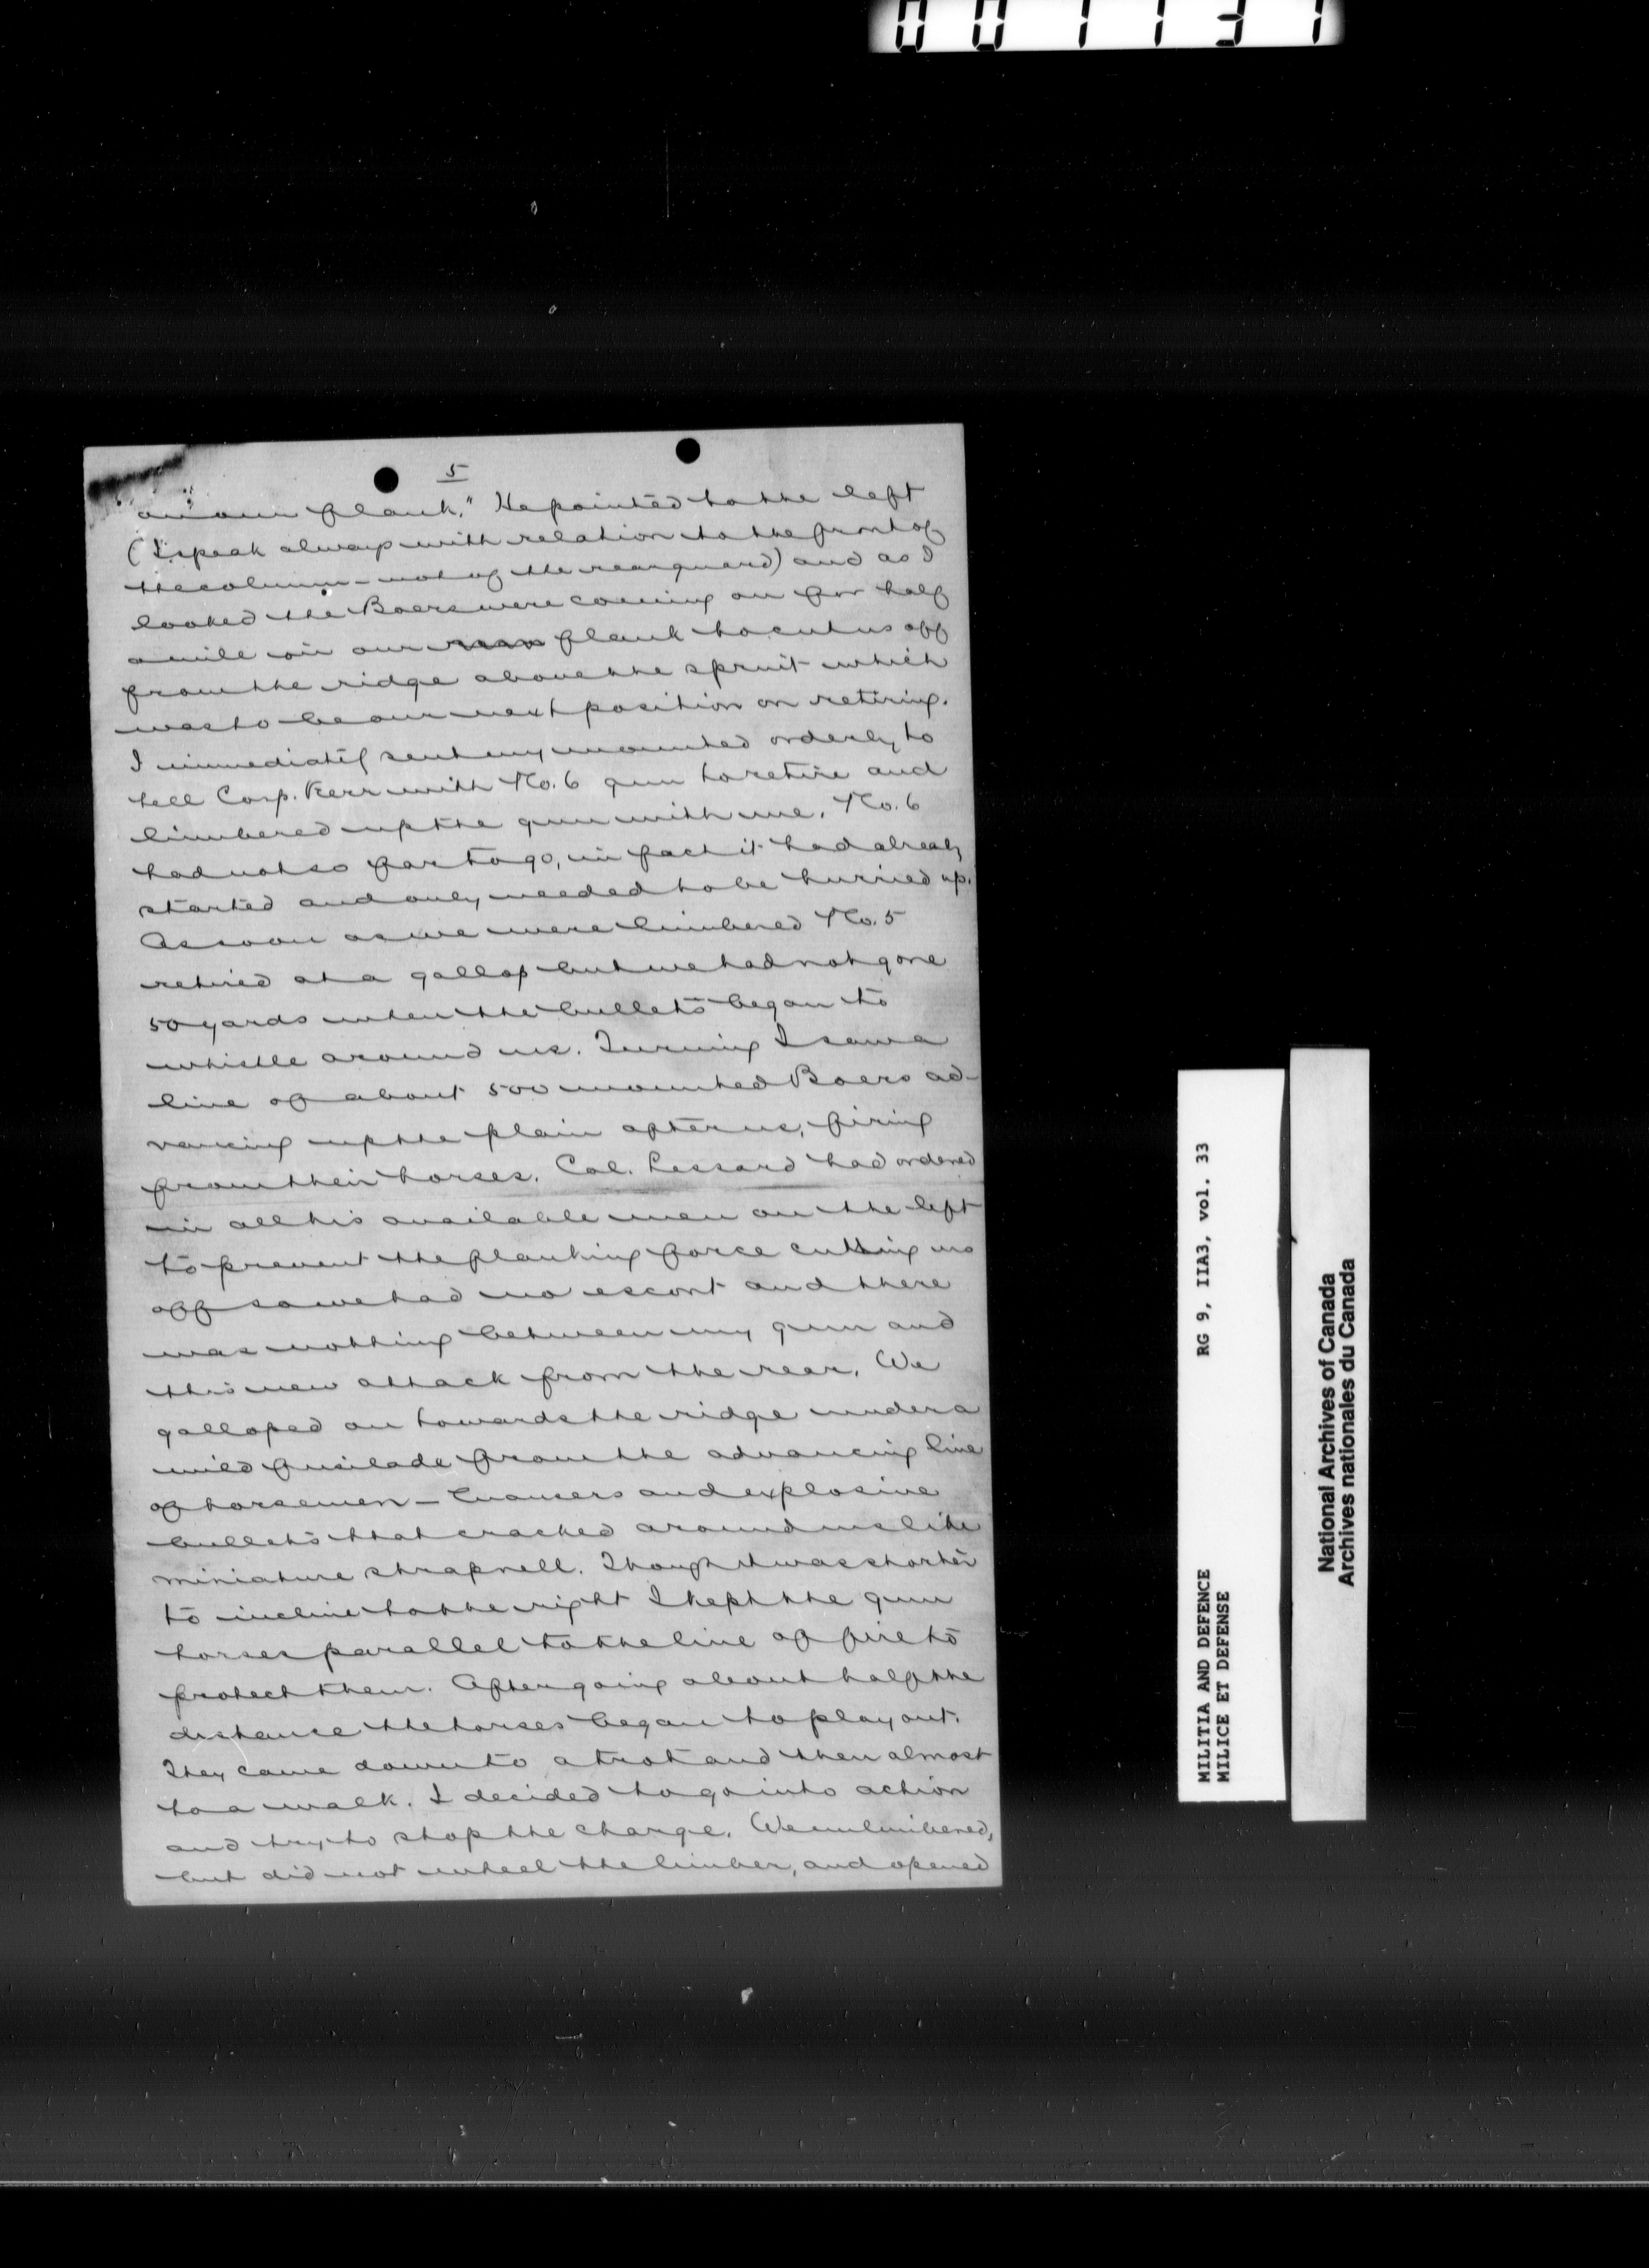 001131
5
on our flank." He pointed to the left
(I speak always with relation to the front of
the column - not of the rearguard) and as I
looked the Boers were coming on for half
a mile on our rear flank to cut us off
from the ridge above the spruit which
was to be our next position on retiring.
I immediately sent my mounted orderly to
tell Corp. Kerr with No. 6 gun to retire and
limbered up the gun with me. No. 6
had not so far to go, in fact it had already
started and only needed to be hurried up.
As soon as we were limbered No. 5
retired at a gallop but we had not gone
50 yards when the bullets began to
whistle around us. Turning I saw a
line of about 500 mounted Boers ad-
vancing up the plain after us, firing
from their horses. Col. Lessard had ordered
in all his available men on the left
to prevent the flanking force cutting us
off so we had no escort and there
was nothing between my gun and
this new attack from the rear. We
galloped on towards the ridge under a
wild fusilade from the advancing line
of horsemen - mausers and explosive
bullets that cracked around us like
miniature shrapnell. Though it was shorter
to incline to the right I kept the gun
horses parallel to the line of fire to
protect them. After going about half the
distance the horses began to play out.
They came down to a trot and then almost
to a walk. I decided to go into action
and try to stop the charge. We unlimbered,
but did not wheel the limber, and opened
MILITIA AND DEFENCE RG 9, IIA3, vol. 33
MILICE ET DEFENSE
National Archives of Canada
Archives nationales du Canada